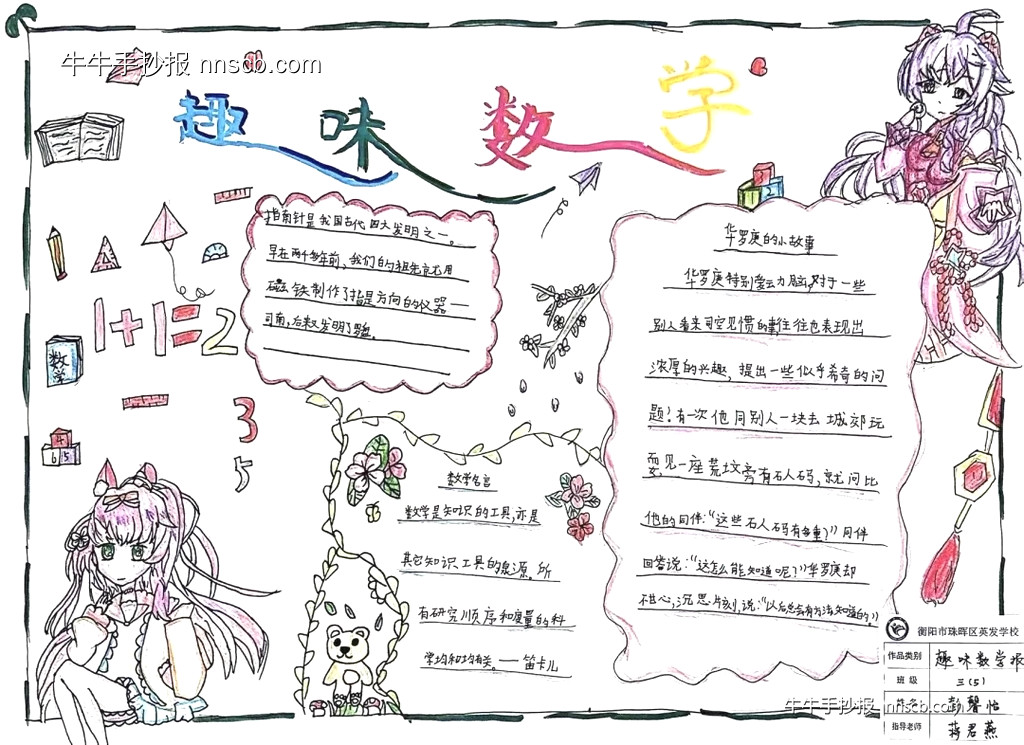 牛牛手抄报 nnscb.com
趣味数学
指南针是我国古代四大发明之一。
早在两千多年前,我们的祖先就用
磁铁制作了指是方向的仪器一
司南,后来又发明了罗盘。
1+1=2
数学
3
5
4
6 5
3
2
数学名言
数学是知识的工具,亦是
其它知识工具的泉源,所
有研究顺序和度量的科
学均和均有关。——笛卡儿
华罗庚的小故事
华罗庚特别爱云力脑,对于一些
别人看来司空见惯的事往往也表现出
浓厚的兴趣,提出一些似乎希奇的问
题!有一次他同别人一块去城郊玩
耍,见一座荒坟旁有石人码,就问比
他的同伴:“这些石人码有多重?”同伴
回答说:“这怎么能知道呢?”华罗庚却
不甘心,沉思片刻,说:“以后总会有方法知道的。”
衡阳市珠晖区英发学校
作品类别 趣味数学报
班级 三(5)
姓名 彭馨怡
指导老师 蒋君燕
牛牛手抄报 nnscb.com